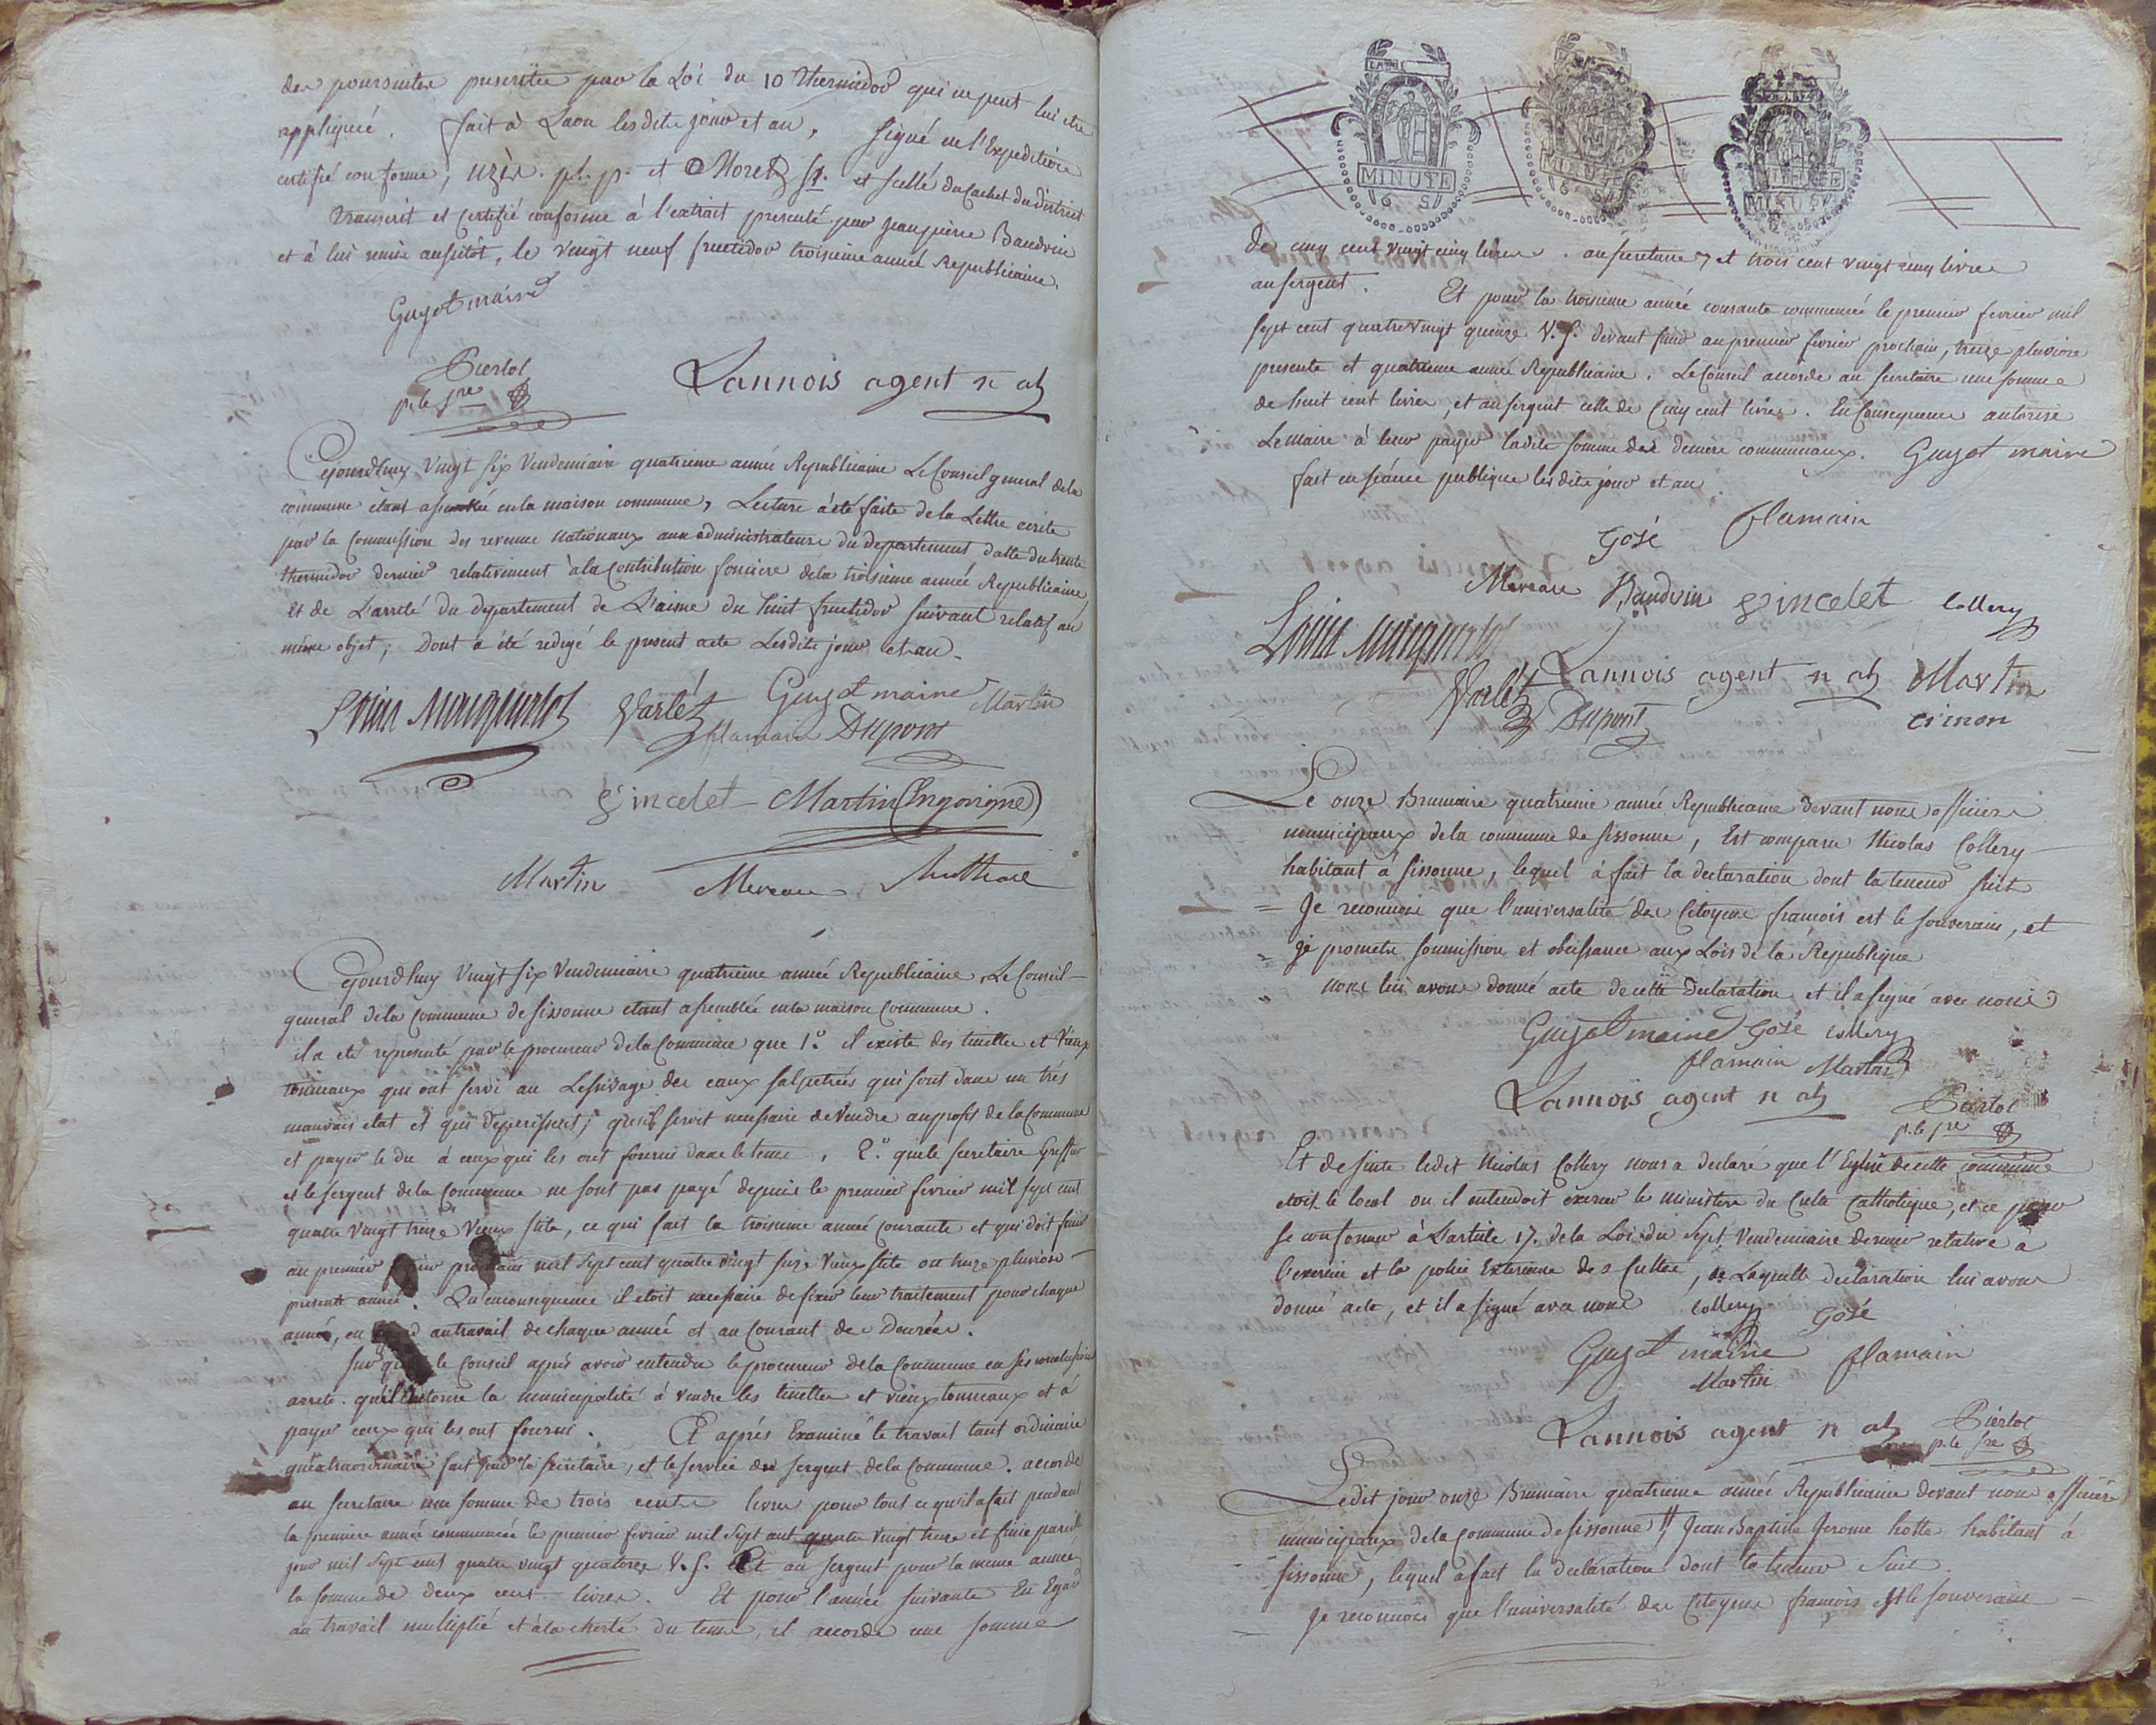 des poursuites prescrites par la Loi du 10 thermidor qui ne peut lui etre
appliqué. fait à Laon lesdits jour et an, signé en l'Expedition
certifié conforme, uzès. pt. p. et Moret st. et scellé du Cachet du district
Transcrit et Certifié conforme á l'extrait presenté par jean pierre Baudvin
et à lui remis ausitôt, le vingt neuf fructidor troisieme année Republicaine.
Guyot maire
Pierlot
p. le gre
Lannois agent n al
Cejourdhuy vingt six Vendemiaire quatrieme année Republicaine Le Conseil general de la
commune étant assemblée en la maison commune, Lecture à été faite de la Lettre ecrite
par la Commission des revenus nationaux aux administrateurs du departement datte du trente
thermidor dernier relativement à la Contribution fonciere de la troisieme année Republicaine
et de L'arreté du departement de L'aisne du huit fructidor suivant relatif au
même objet, Dont a été redigé le present acte Lesdits jour et an.
Louis Mauquerlot Varlet Guyot maire Martin
flamain Dupont
Vincelet Martin
Martin Mereau
Cejourdhuy vingt six Vendemiaire quatrieme année Republicaine, Le Conseil
general de la Commune de Sissonne etant assemblée en la maison Commune.
il a eté representé par le procureur de la Commune que 1.° il existe des tinettes et vieux
tonneaux qui ont servi au Lessivage des eaux salpetrées qui sont dans un très
mauvais etat et qui deperissent; qu'il seroit necessaire de vendre au profit de la Commune
et payer le du á ceux qui les ont fourni dans le tems, 2.° que le secretaire Greffier
et le sergent de la Commune ne sont pas payé depuis le premier fevrier mil sept cent
quatre vingt treize vieux stile, ce qui fait la troisieme année Courante et qui doit finir
au premier fevrier prochain mil sept cent quatre vingt seize vieux stile ou treize pluviose
presente année. Qu'en consequence il etoit necessaire de fixer leur traitement pour chaque
année, en egard au travail de chaque année et au Courant des Denrées.
Sur quoi le Conseil après avoir entendu le procureur de la Commune en ses conclusions
arrete. qu'il autorise la municipalité à vendre les tinettes et vieux tonneaux et á
payer ceux qui les ont fourni. Et aprés Examiné le travail tant ordinaire
qu'extraordinaire fait par le secretaire, et le service du sergent de la Commune. accorde
au secretaire une somme de trois cents livres pour tout ce qu'il a fait pendant
la premiere année commencée le premier fevrier mil sept cent quatre vingt treize et finie pareil
jour mil sept cent quatre vingt quatorze V. S. Et au sergent pour la meme année
la somme de deux cent livres. Et pour l'année suivante En Egard
au travail multiplié et à la cherté du tems, il accorde une somme
MINUTE
MINUTE
MINUTE
de cinq cent vingt cinq livres. au secretaire, et trois cent vingt cinq livres
au sergent. Et pour la troisieme année courante commencée le premier fevrier mil
sept cent quatre vingt quinze V. S. devant finir au premier fevrier prochain, treize pluviose
presente et quatrieme année Republicaine. Le Conseil accorde au secretaire une somme
de huit cent livres, et au sergent celle de Cinq cent livres. En Consequence autorise
Le maire à leur payer ladite somme des deniers communaux. Guyot maire
fait en séance publique lesdits jour et an.
Gosé flamain
Mereau Baudvin Vincelet Collery
Louis Mauquerlot
Lannois agent n al Martin
Varlet Dupont crinon
Le onze Brumaire quatrieme année Republicaine devant nous officiers
municipaux de la commune de Sissonne, Est comparu Nicolas Collery
habitant à Sissonne, lequel à fait la declaration dont la teneur suit
= Je reconnois que l'universalité des Citoyens francois est le souverain, et
= je promets soumission et obeissance aux Lois de la Republique
nous lui avons donné acte de cette Declaration et il a signé avec nous
Guyot maire Gosé Collery
flamain Martin
Lannois agent n al Pierlot
p. le gre
Et de suite ledit Nicolas Collery nous a declaré que l'Eglise de cette commune
etoit le local ou il entendoit exercer le ministere du Culte Catholique, et ce pour
se conformer à L'article 17. de la Loi du Sept Vendemiaire dernier relative à
l'exercice et la police Exterieure des Cultes, de Laquelle declaration lui avons
donné acte, et il a signé avec nous Collery Gosé
Guyot maire flamain
Martin
Lannois agent n al Pierlot
p. le gre
Ledit jour onze Brumaire quatrieme année Republicaine devant nous officiers
municipaux de la Commune de Sissonne # Jean Baptiste Jerome hotte habitant à
Sissonne, lequel a fait la declaration dont la teneur suit.
Je reconnois que l'universalité des Citoyens francois est le souverain